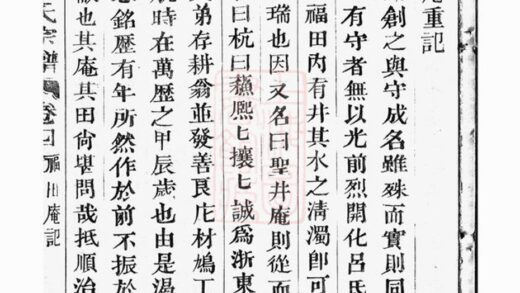 重記
創之與守成名雖殊而實則同
有守者無以光前烈開化呂氏
福田內有井其水之清濁卽可
瑞也因又名曰聖井庵則從而
曰杭曰蘓熈匕攘匕誠爲浙東
弟存耕翁並發善良庀材鳩工
時在萬歷之甲辰歲也由是渴
銘歷有年所然作於前不振於
也其庵其田尙堪問哉抵順治
氏宗譜 卷四 福田庵記